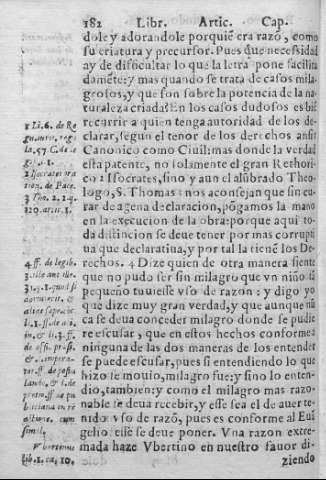 182 Libr. Artic. Cap.
dole y adorandole porquiẽ era razõ, como
su criatura y precursor. Pues que necessidad
ay de dificultar lo que la letra pone facilita
damẽte: y mas quando se trata de casos mila
grosos, y que son sobre la potencia de la na
turaleza criada? En los casos dudosos es biẽ
recurrir a quien tenga autoridad de los de-
clarar, segun el tenor de los derechos ansi
Canonico como Ciuil: mas donde la verdad
esta patente, no solamente el gran Rethori-
co 2 Issocrates, sino y aun el alũbrado Theo
logo, S. Thomas: nos aconsejan que sin cu-
rar de agena declaracion, põgamos la mano
en la execucion de la obra: porque aqui to-
da distincion se deue tener por mas corrupti
ua que declaratiua, y por tal la tienẽ los De-
rechos. 4 Dize quien de otra manera siente
que no pudo ser sin milagro que vn niño tã
pequeño tuuiesse vso de razon: y digo yo
que dize muy gran verdad, y que aunque nũ
ca se deua conceder milagro donde se pudie
re escusar, que en estos hechos conformes
ninguna de las dos maneras de los entender
se puede escusar, pues si entendiendo lo que
hizo se mouio, milagro fue: y sino lo enten-
dio, tambien: y como el milagro mas razo-
nable se deua recebir, y esse sea el de auer te-
nido vso de razõ, pues es conforme al Euã
gelio: esse se deue poner. Vna razon extre-
mada haze Vbertino en nuestro fauor di-
ziendo
1 Li. 6. de Re
3 Tho. 2. 2. q.
120. artic. 1.
4 ff. de legib.
simil.
lib. 1. ca. 10.